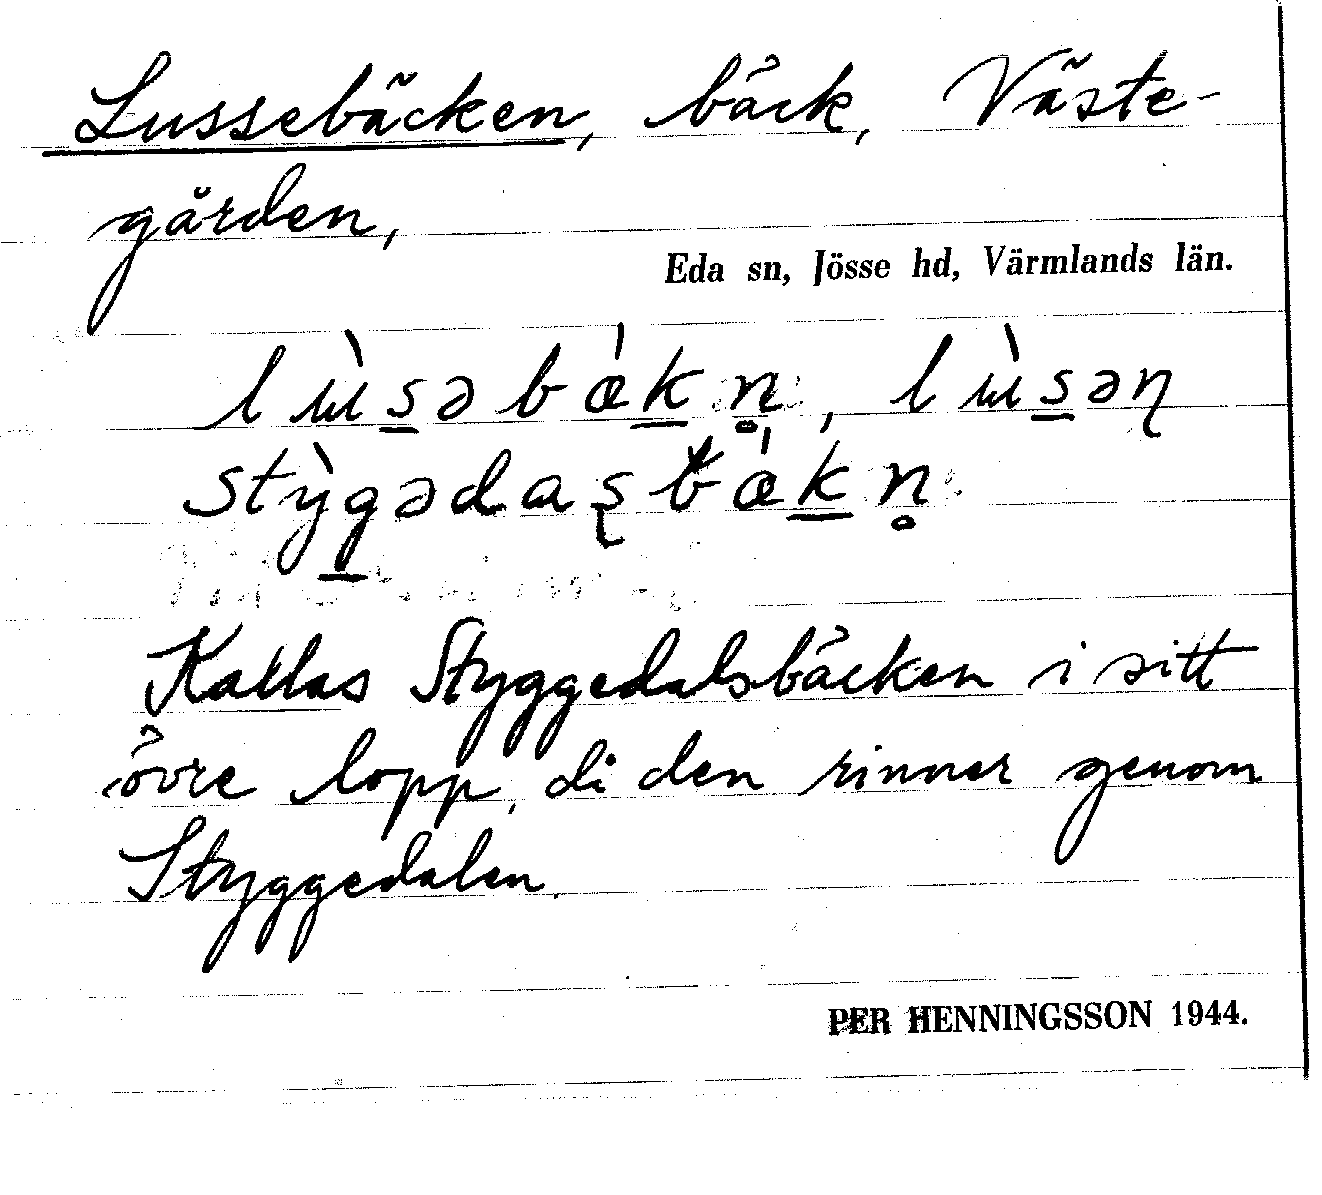 Lussebäcken, bäck, Väste-
gården,
Eda sn, Jösse hd, Värmlands län.
Kallas Styggedalsbäcken i sitt
övre lopp, di den rinner genom
Styggedalen.
PER HENNINGSSON 1944.